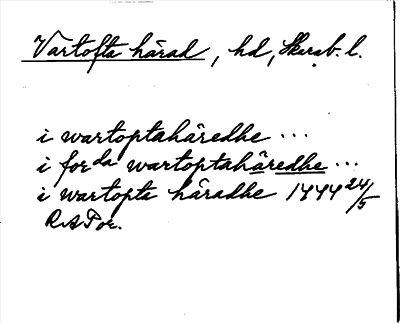 Vartofta härad, hd, Skarab. l.
i wartoptahäredhe ...
i forda wartoptahäredhe ...
i wartopta häradhe 1444 24/5
RAPor.